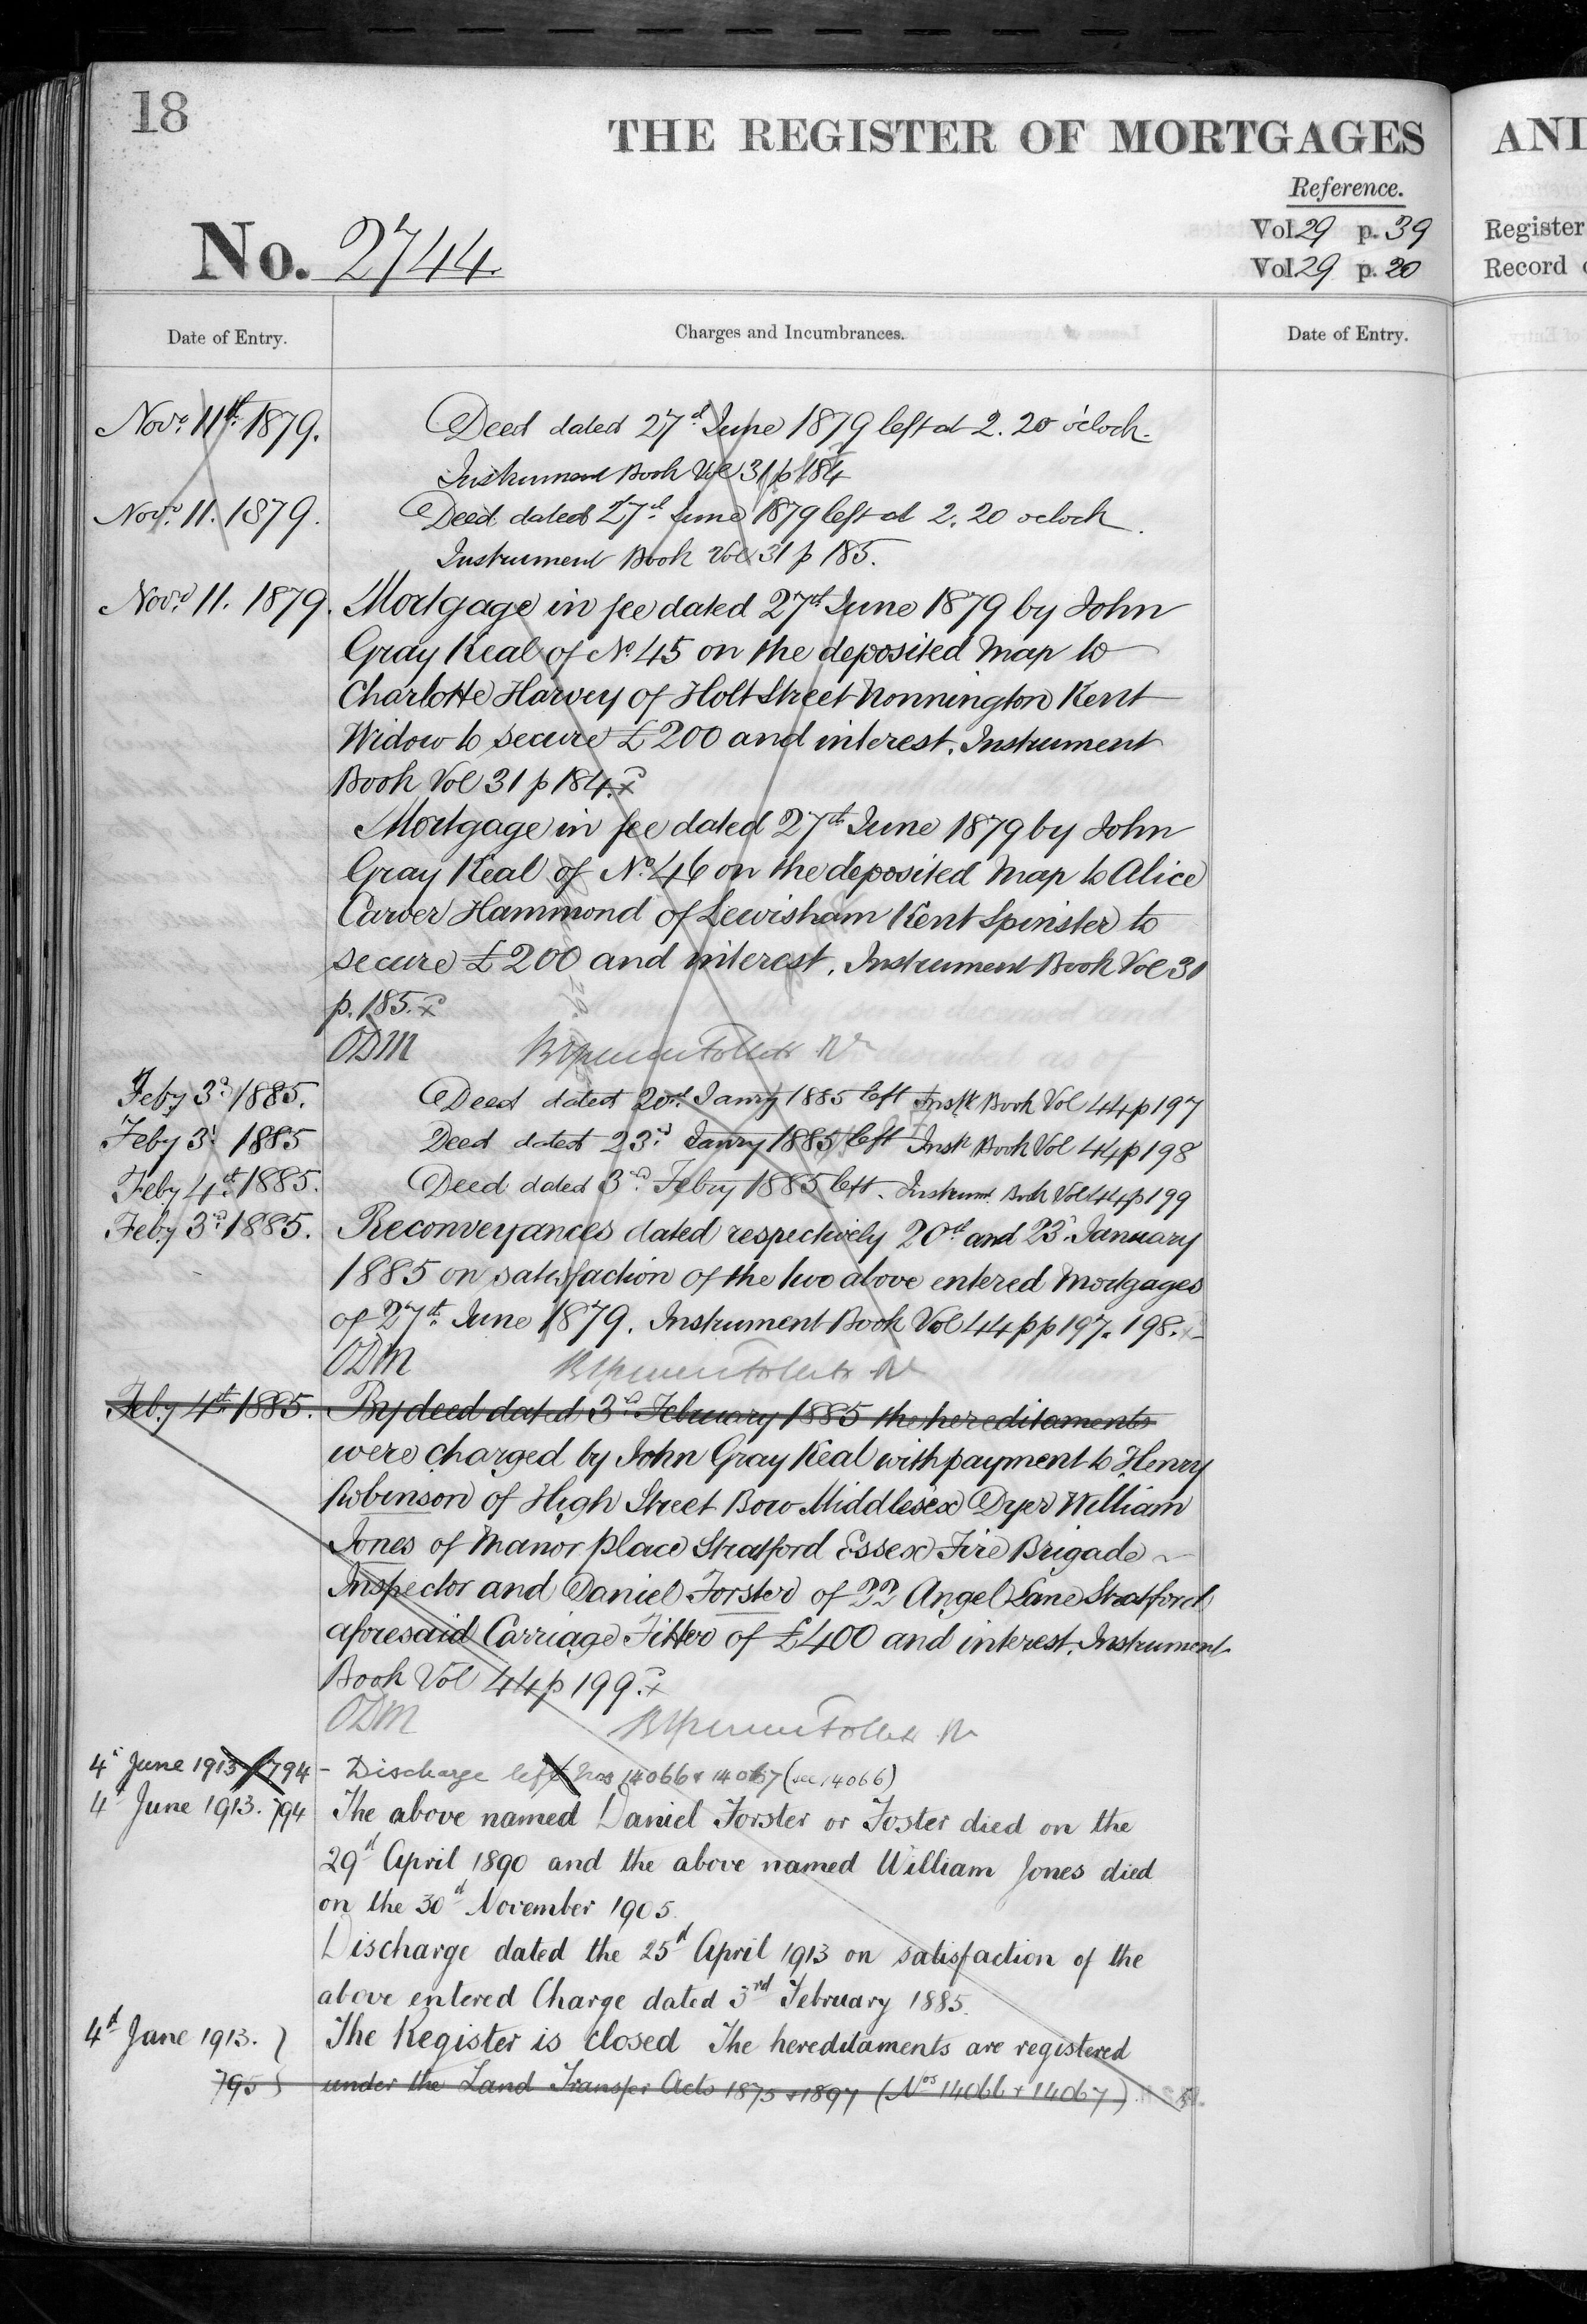 18
THE REGISTER OF MORTGAGES
AND
Reference.
No. 2744.
Vol. 29 p. 39
Register
Vol. 29 p. 20
Record
Date of Entry.
Charges and Incumbrances.
Date of Entry.
Novr. 11th. 1879. Deed dated 27th June 1879 left at 2.20 o'clock.
Instrument Book Vol 31 p 184
Novr. 11. 1879. Deed dated 27th June 1879 left at 2.20 oclock.
Instrument Book Vol 31 p 185.
Novr. 11. 1879. Mortgage in fee dated 27th June 1879 by John
Gray Keal of No. 45 on the deposited Map to
Charlotte Harvey of Holt Street Nonnington Kent
Widow to secure £200 and interest. Instrument
Book Vol 31 p 184. x
Mortgage in fee dated 27th June 1879 by John
Gray Keal of No. 46 on the deposited Map to Alice
Carver Hammond of Lewisham Kent Spinster to
secure £200 and interest. Instrument Book Vol 31
p. 185. x
ODM
Feby 3d. 1885. Deed dated 20th. Janry 1885 left Instr Book Vol 44 p 197
Feby 3d. 1885 Deed dated 23rd. Janry 1885 left Instr Book Vol 44 p 198
Feby 4th. 1885. Deed dated 3rd. Febry 1885 left. Instrumt. Book Vol 44 p 199
Feby 3d. 1885. Reconveyances dated respectively 20th and 23d. January
1885 on satisfaction of the two above entered Mortgages
of 27th. June 1879. Instrument Book Vol 44 pp 197. 198. x
ODM
Feby 4th 1885. By deed dated 3rd February 1885 the hereditaments
were charged by John Gray Keal with payment to Henry
Robinson of High Street Bow Middlesex Dyer William
Jones of Manor place Stratford Essex Fire Brigade
Inspector and Daniel Forster of 22 Angel Lane Stratford
aforesaid Carriage Fitter of £400 and interest. Instrument
Book Vol 44 p 199. x
ODM
4th June 1913 / 794 - Discharge left Nos 14066 & 14067 (see 14066)
4th June 1913. 794 The above named Daniel Forster or Foster died on the
29th April 1890 and the above named William Jones died
on the 30th November 1905.
Discharge dated the 25th April 1913 on satisfaction of the
above entered Charge dated 3rd February 1885.
4th June 1913. } The Register is closed The hereditaments are registered
795 } under the Land Transfer Acts 1875 & 1897 (Nos 14066 & 14067).